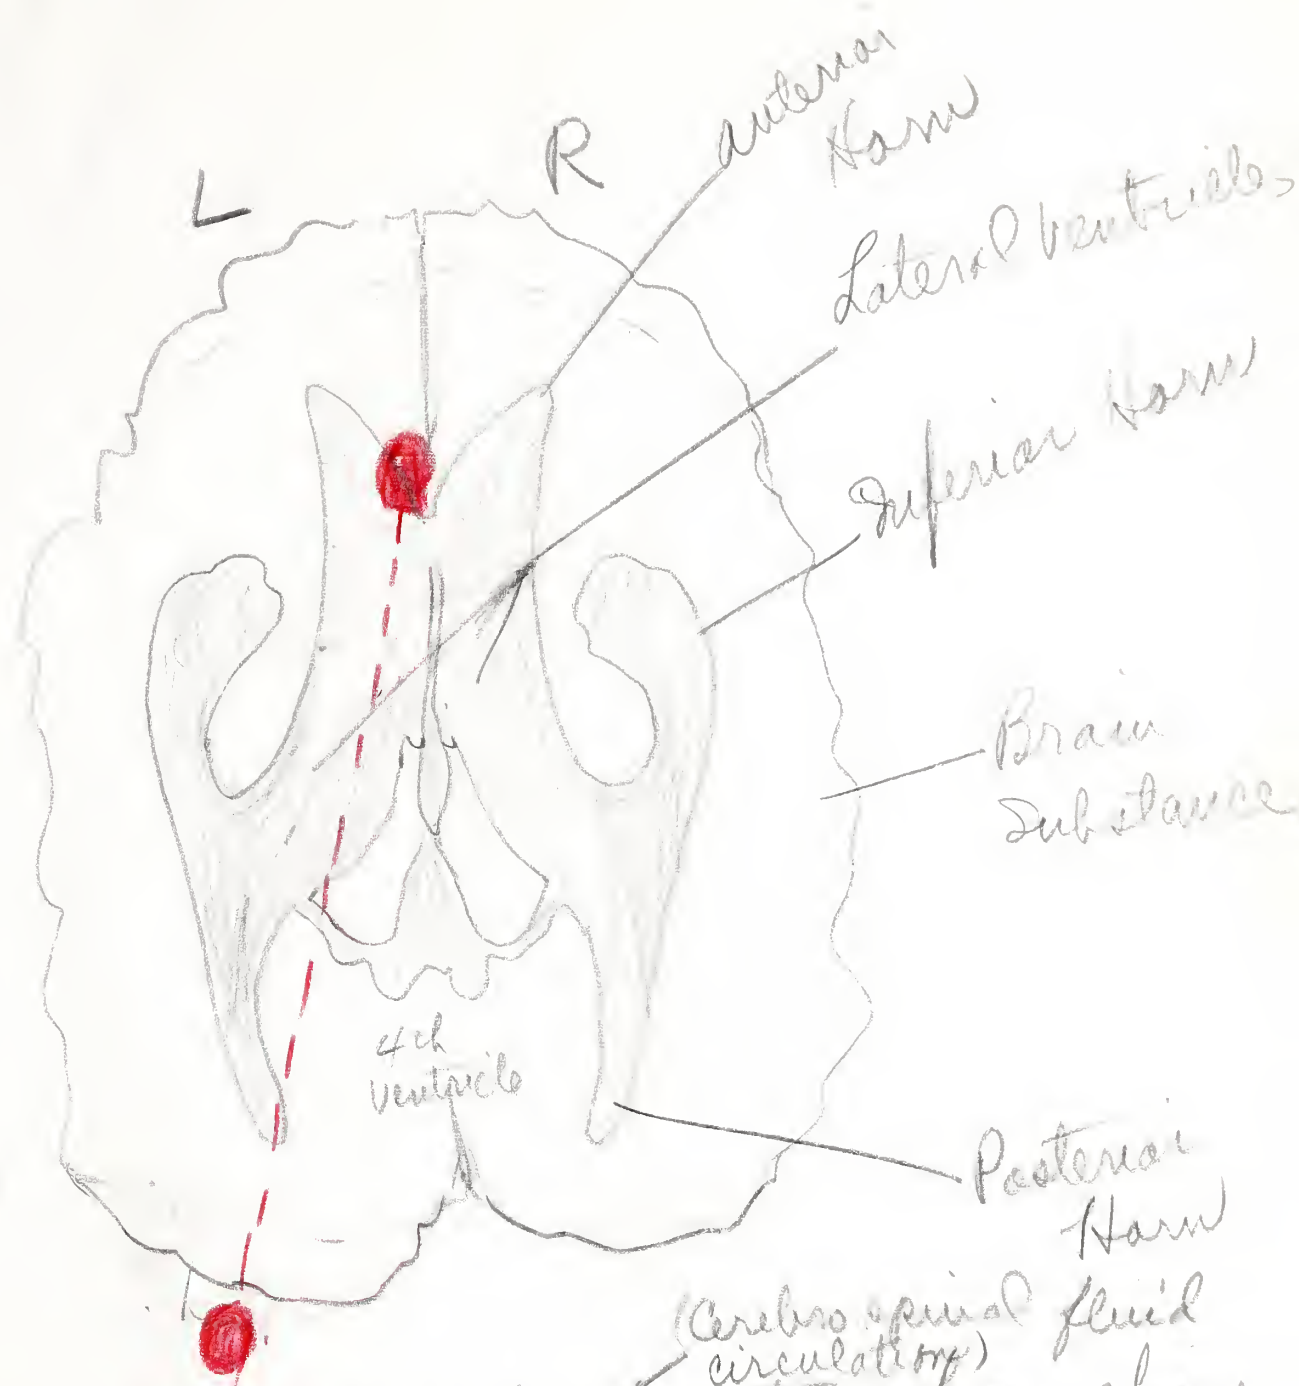 L
R
anterior
Horn
Lateral Ventricles
Inferior Horn
Brain
Substance
4th
Ventricle
Posterior
Horn
(Cerebro spinal fluid
circulation)